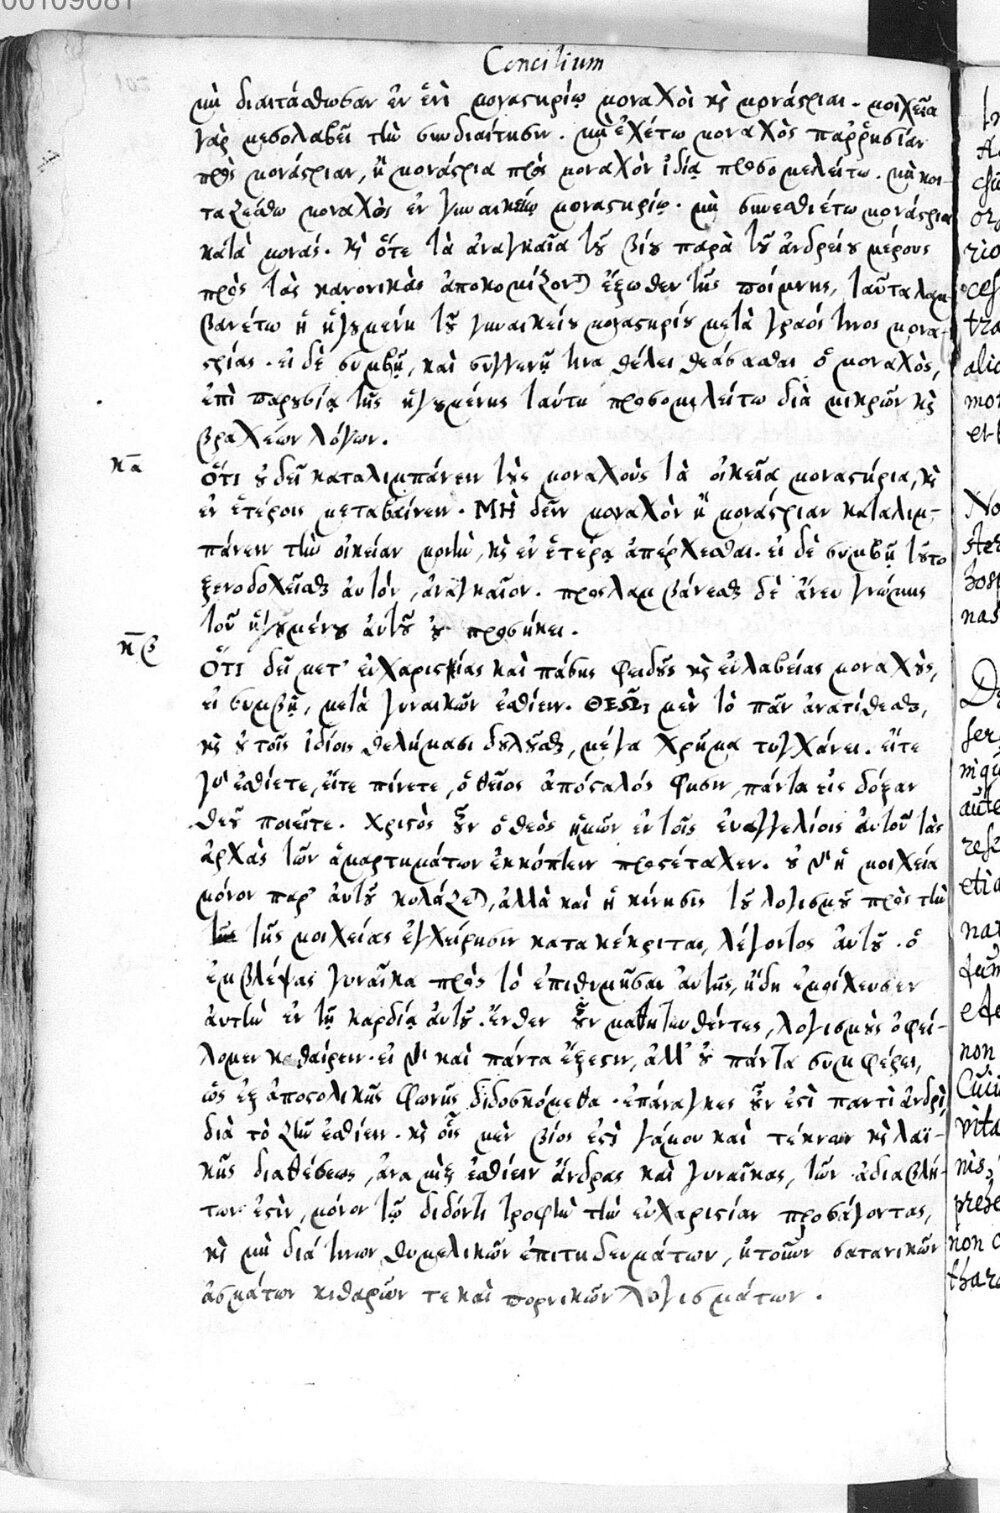 00109081
Concilium
μὴ διαιτάσθωσαν ἐν ἑνὶ μοναστηρίῳ μοναχοὶ κὶ μονάστριαι. μοιχεία
γὰρ μεσολαβεῖ τὴν συνδιαίτησιν. μὴ ἐχέτω μοναχὸς παρρησίαν
πρὸς μονάστριαν, ἢ μονάστρια πρὸς μοναχὸν ἰδίᾳ προσομιλείτω. μὴ κοι-
ταζέσθω μοναχὸς ἐν γυναικείῳ μοναστηρίῳ. μὴ συνεσθιέτω μονάστρια
κατὰ μονάς. κὶ ὅτε τὰ ἀναγκαῖα τοῦ βίου παρὰ τοῦ ἀνδρείου μέρους
πρὸς τὰς κανονικὰς ἀποκομίζονται ἔξωθεν τῆς ποίμνης, ταῦτα λαμ-
βανέτω ἡ ἡγουμένη τοῦ γυναικείου μοναστηρίου μετὰ γραός τινος μονα-
στρίας. εἰ δὲ συμβῇ, καὶ συγγενῆ τινα θέλει θεάσασθαι ὁ μοναχὸς,
ἐπὶ παρουσίᾳ τῆς ἡγουμένης ταύτῃ προσομιλείτω διὰ μικρῶν κὶ
βραχέων λόγων.
κα Ὅτι οὐ δεῖ καταλιμπάνειν τοὺς μοναχοὺς τὰ οἰκεῖα μοναστήρια, κὶ
ἐν ἑτέροις μεταβαίνειν. ΜῊ δεῖν μοναχὸν ἢ μονάστριαν καταλιμ-
πάνειν τὴν οἰκείαν μονὴν, κὶ ἐν ἑτέρᾳ ἀπέρχεσθαι. εἰ δὲ συμβῇ τοῦτο
ξενοδοχεῖσθαι αὐτόν, ἀναγκαῖον. προσλαμβάνεσθαι δὲ ἄνευ γνώμης
τοῦ ἡγουμένου αὐτοῦ οὐ προσήκει.
κβ Ὅτι δεῖ μετ' εὐχαριστίας καὶ πάσης φειδοῦς κὶ εὐλαβείας μοναχοὺς,
εἰ συμβῇ, μετὰ γυναικῶν ἐσθίειν. ΘΕῶ μὲν τὸ πᾶν ἀνατίθεσθαι,
κὶ οὐ τοῖς ἰδίοις θελήμασι δουλοῦσθαι, μέγα χρῆμα τυγχάνει. εἴτε
γὰρ ἐσθίετε, εἴτε πίνετε, ὁ θεῖος ἀπόστολός φησιν, πάντα εἰς δόξαν
θεοῦ ποιεῖτε. Χριστὸς οὖν ὁ θεὸς ἡμῶν ἐν τοῖς εὐαγγελίοις αὐτοῦ τὰς
ἀρχὰς τῶν ἁμαρτημάτων ἐκκόπτειν προσέταξεν. οὐ γὰρ ἡ μοιχεία
μόνον παρ' αὐτοῦ κολάζεται, ἀλλὰ καὶ ἡ κίνησις τοῦ λογισμοῦ πρὸς τὴν
τῆς μοιχείας ἐγχείρησιν κατακέκριται, λέγοντος αὐτοῦ. ὁ
ἐμβλέψας γυναῖκα πρὸς τὸ ἐπιθυμῆσαι αὐτῆς, ἤδη ἐμοίχευσεν
αὐτὴν ἐν τῇ καρδίᾳ αὐτοῦ. ἔνθεν οὖν μαθητευθέντες, λογισμοὺς ὀφεί-
λομεν καθαίρειν. εἰ γὰρ καὶ πάντα ἔξεστιν, ἀλλ' οὐ πάντα συμφέρει,
ὡς ἐξ ἀποστολικῆς φωνῆς διδασκόμεθα. ἐπάναγκες οὖν ἐστὶ παντὶ ἀνδρὶ
διὰ τὸ ζῆν ἐσθίειν. κὶ οἷς μὲν βίος ἐστὶ γάμου καὶ τέκνων κὶ λαϊ-
κῆς διαθέσεως, ἀναμὶξ ἐσθίειν ἄνδρας καὶ γυναῖκας, τῶν ἀδιαβλή-
των ἐστίν, μόνον τῷ διδόντι τροφὴν τὴν εὐχαριστίαν προσάγοντας,
κὶ μὴ διά τινων θυμελικῶν ἐπιτηδευμάτων, ἤτουν σατανικῶν
ἀσμάτων κιθαρῶν τε καὶ πορνικῶν λογισμάτων.